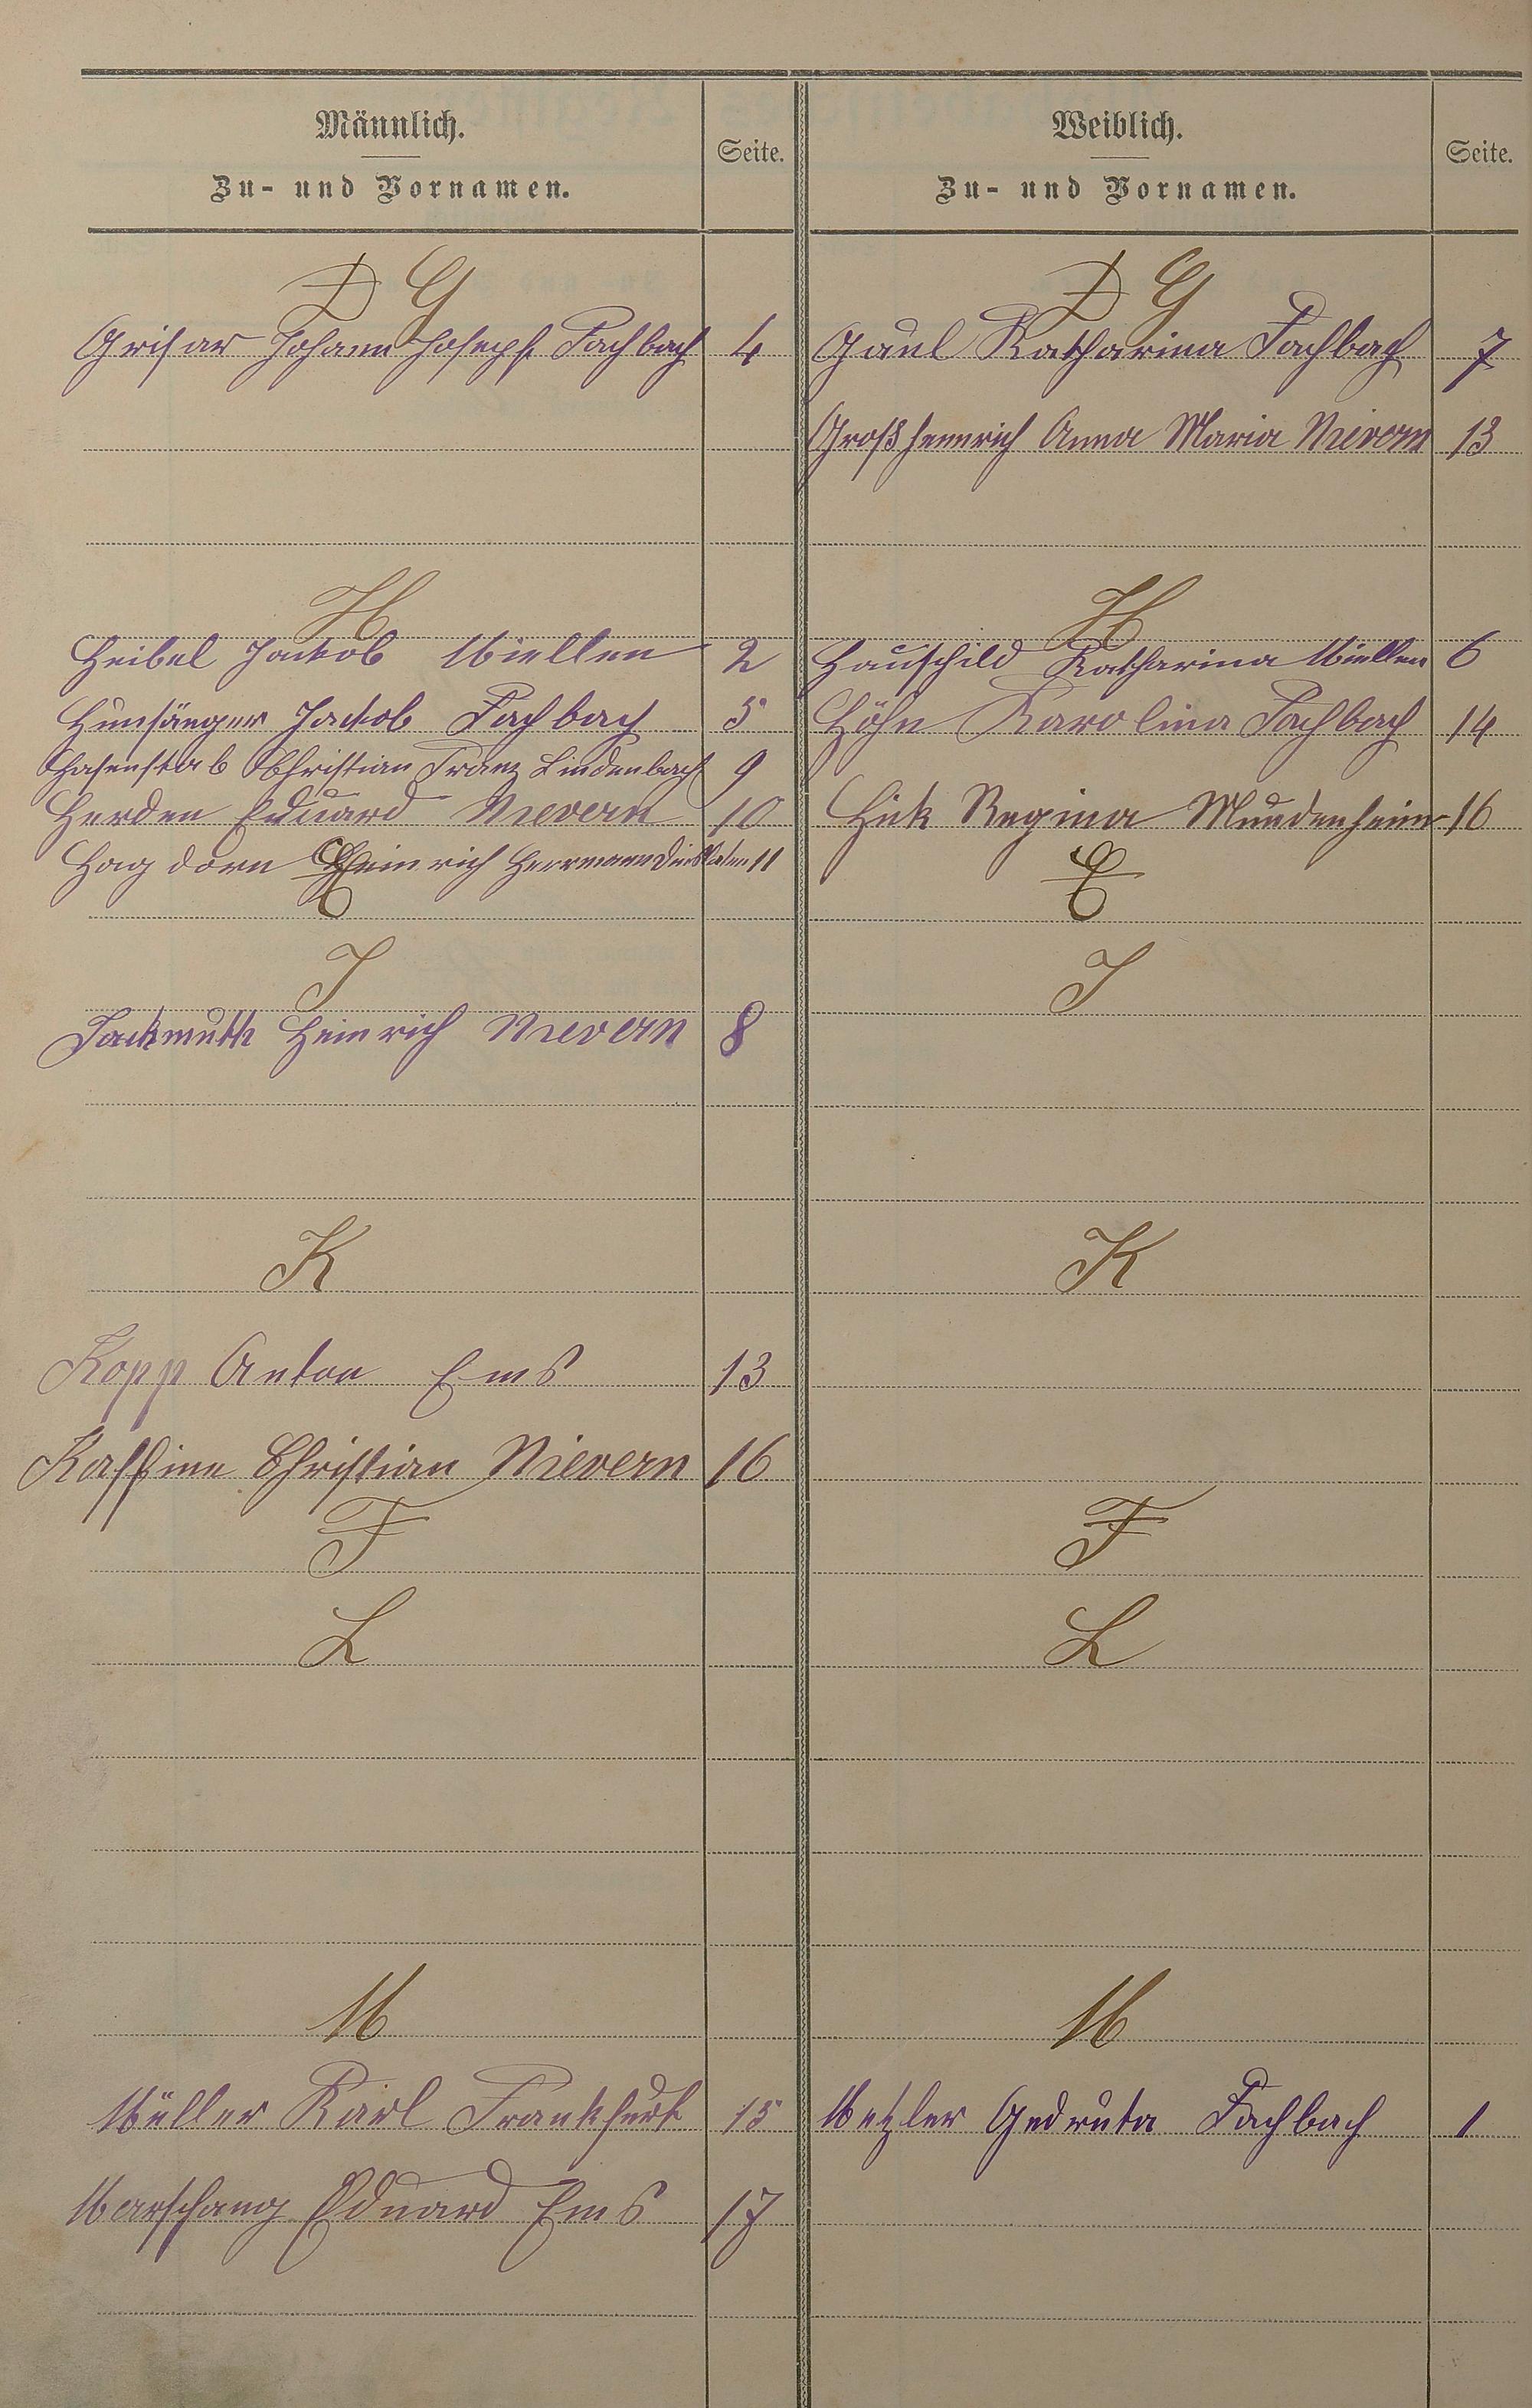 Männlich.
Zu- und Vornamen.
Seite.
Weiblich.
Zu- und Vornamen.
Seite.
D G
D G
Grisar Johann Joseph Fachbach 4
Gaul Katharina Fachbach 7
Großheinrich Anna Maria Nievern 13
H
H
Heibel Jackob Miellen 2
Hauschild Katharina Miellen 6
Hunsänger Jackob Fachbach 5
Höhn Karolina Fachbach 14
Hasenstab Christian Franz Lindenbach 9
Herden Eduard Nievern 10
Hick Regina Mundenheim 16
Hagdorn Heinrich Herrmann Dinslaken 11
E
E
J
J
Jackmuth Heinrich Nievern 8
K
K
Kopp Anton Ems 13
Christian Nievern 16
F
F
L
L
M
M
Müller Karl Frankfurt 15
Metzler Gedruta Fachbach 1
Marschang Eduard Ems 17